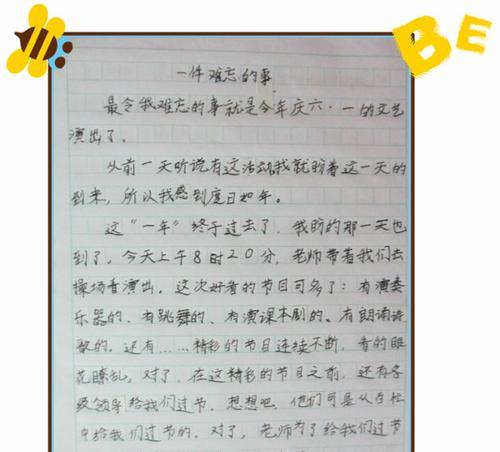 BE
一件难忘的事
最令我难忘的事就是今年庆六·一的文艺
演出了。
从前一天听说有这活动我就盼着这一天的
到来，所以我感到度日如年。
这“一年”终于过去了，我盼的那一天也
到了，今天上午8时20分，老师带着我们去
操场看演出。这次好看的节目可多了：有演奏
乐器的、有跳舞的、有演课本剧的、有朗诵诗
歌的。还有……精彩的节目连续不断，看的眼
花瞭乱。对了，在这精彩的节目之前，还有各
级领导给我们过节，想想吧，他们可是从百忙
中给我们过节的。对了，老师为了给我们过节